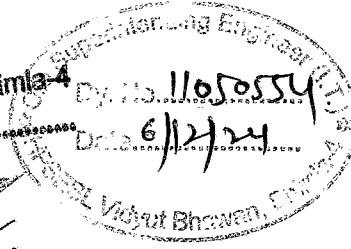 Superintending Engineer (I.T.)
imla-4
Dy. No. 11050554
Date 6/12/24
Vidyut Bhawan,